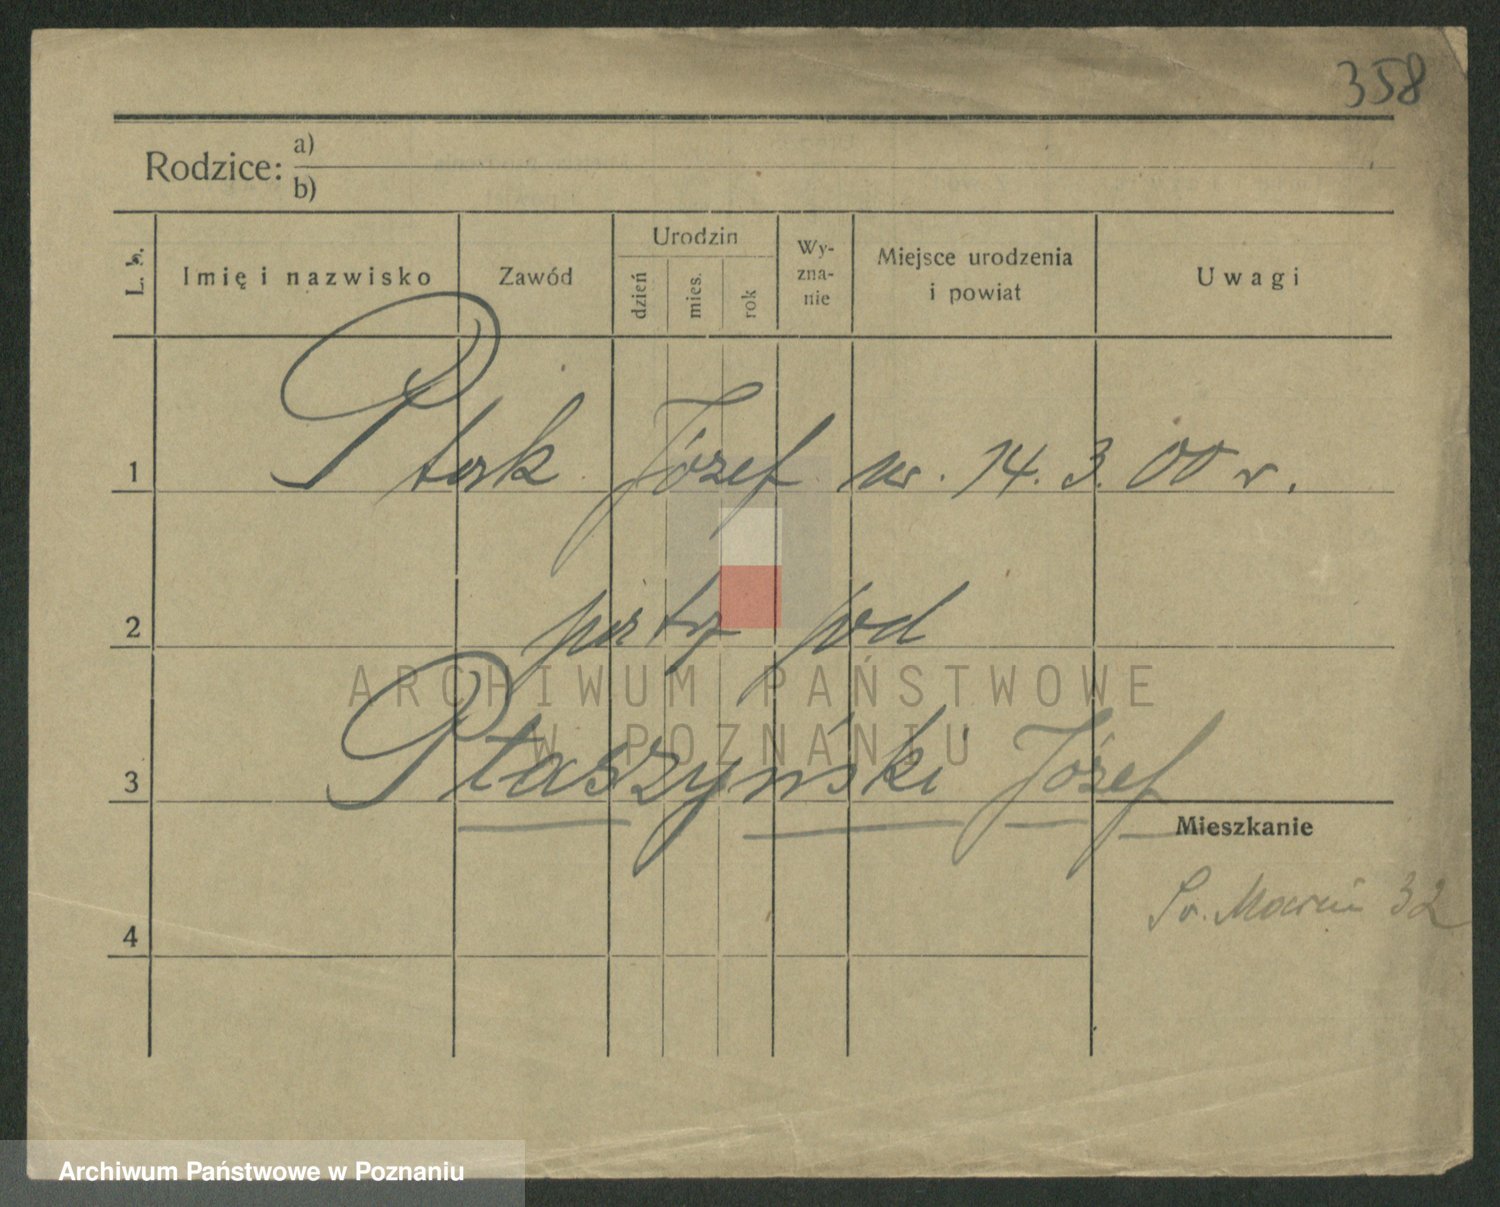 358
Rodzice: a)
b)
L. b.
Imię i nazwisko
Zawód
Urodzin
dzień
mies.
rok
Wy-
zna-
nie
Miejsce urodzenia
i powiat
Uwagi
1
Ptak Józef ur. 14. 3. 00 r.
2
patrz pod
ARCHIWUM PAŃSTWOWE
W POZNANIU
3
Ptaszyński Józef
Mieszkanie
Św. Marcin 32
4
Archiwum Państwowe w Poznaniu